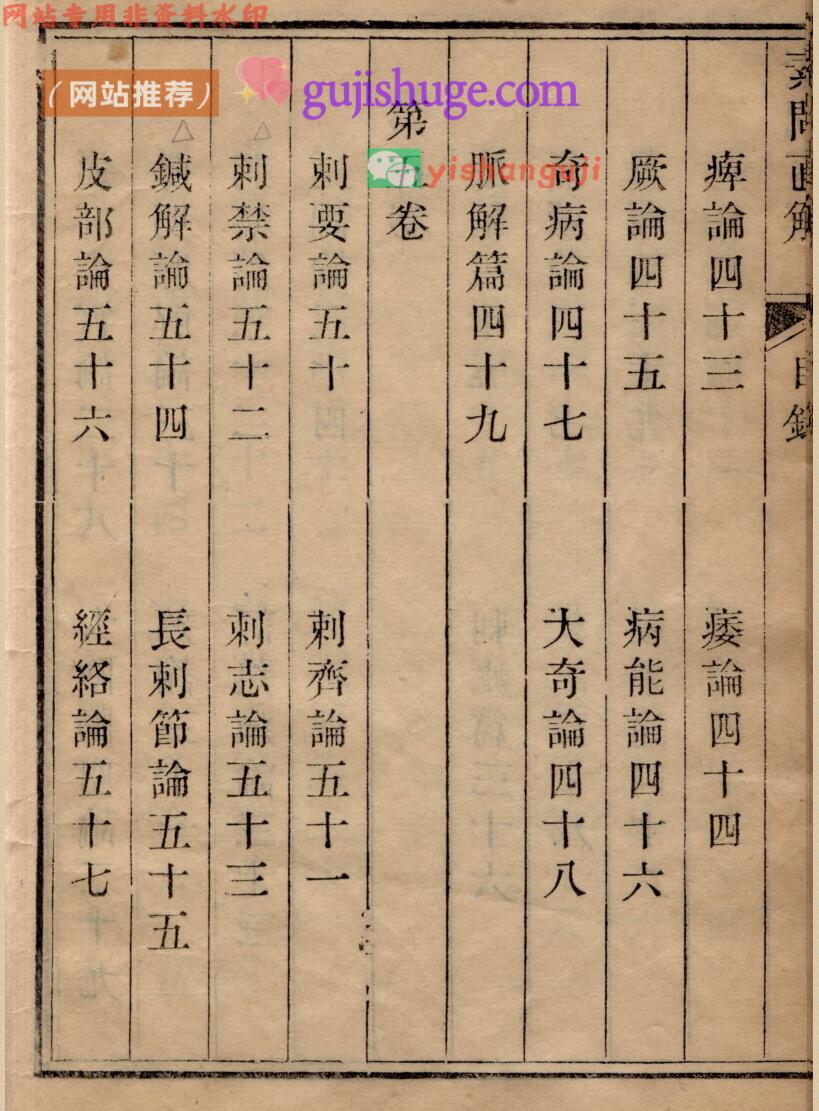 网站专用非资料水印
（网站推荐）
gujishuge.com
yishanguji
素問直解
目錄
痺論四十三　痿論四十四
厥論四十五　病能論四十六
奇病論四十七　大奇論四十八
脈解篇四十九
第五卷
刺要論五十　刺齊論五十一
刺禁論五十二　刺志論五十三
鍼解論五十四　長刺節論五十五
皮部論五十六　經絡論五十七